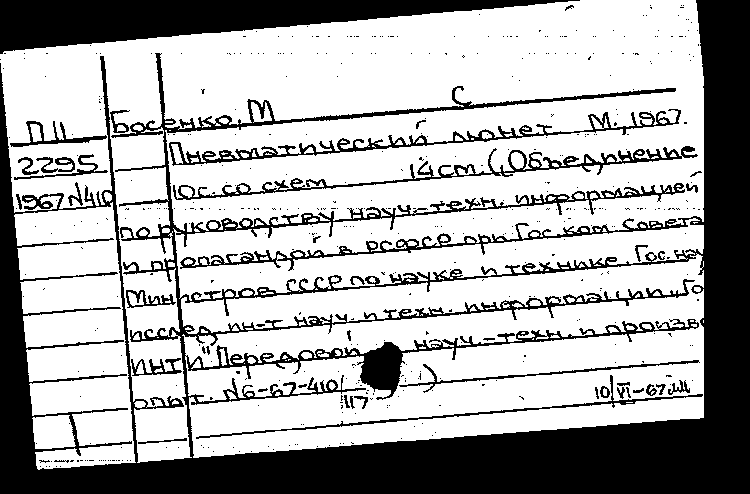 П11 Босенко, М С
2295 Пневматический люнет М., 1967.
1967 №410 10с. со схем 14 см. („Объединение
по руководству науч.-техн. информацией
и пропагандой в РСФСР при Гос. ком. Совета
Министров СССР по науке и технике. Гос. нау
исслед. ин-т науч. и техн. информации „Го
ИНТИ" Передовой науч.-техн. и произв
опыт. №6-67-410/117)
10/VI-67